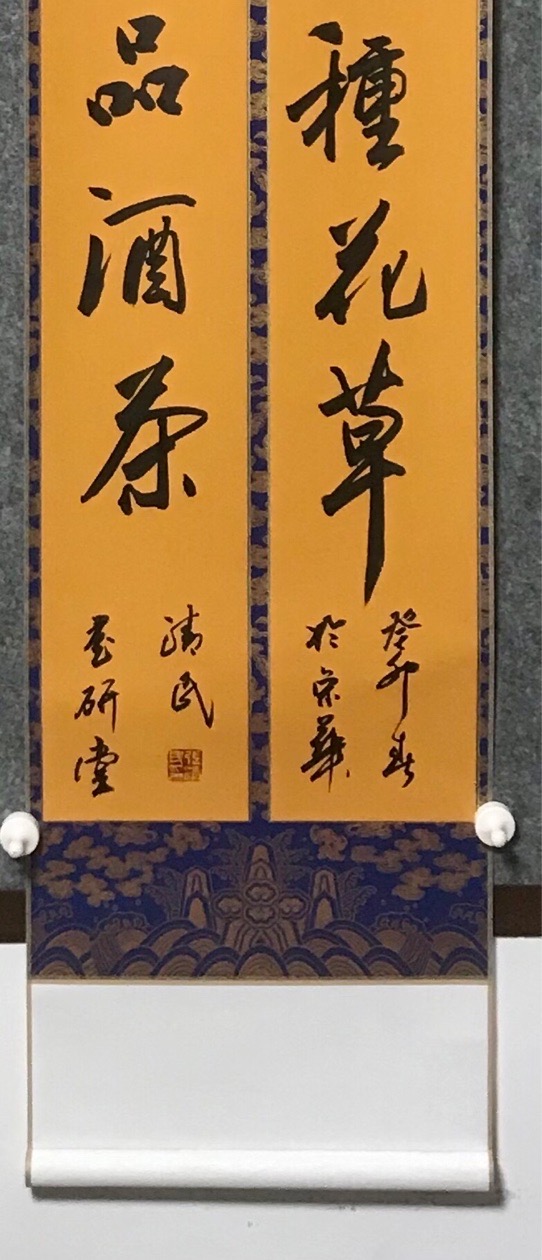 種花草
癸卯春
於京華
品酒茶
民
研堂